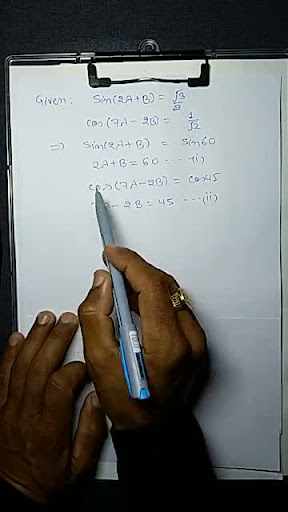 Given: Sin(2A+B) = √3/2
cos(7A-2B) = 1/√2
⇒ Sin(2A+B) = Sin60
2A+B = 60 ---(i)
cos(7A-2B) = cos45
- 2B = 45 ---(ii)